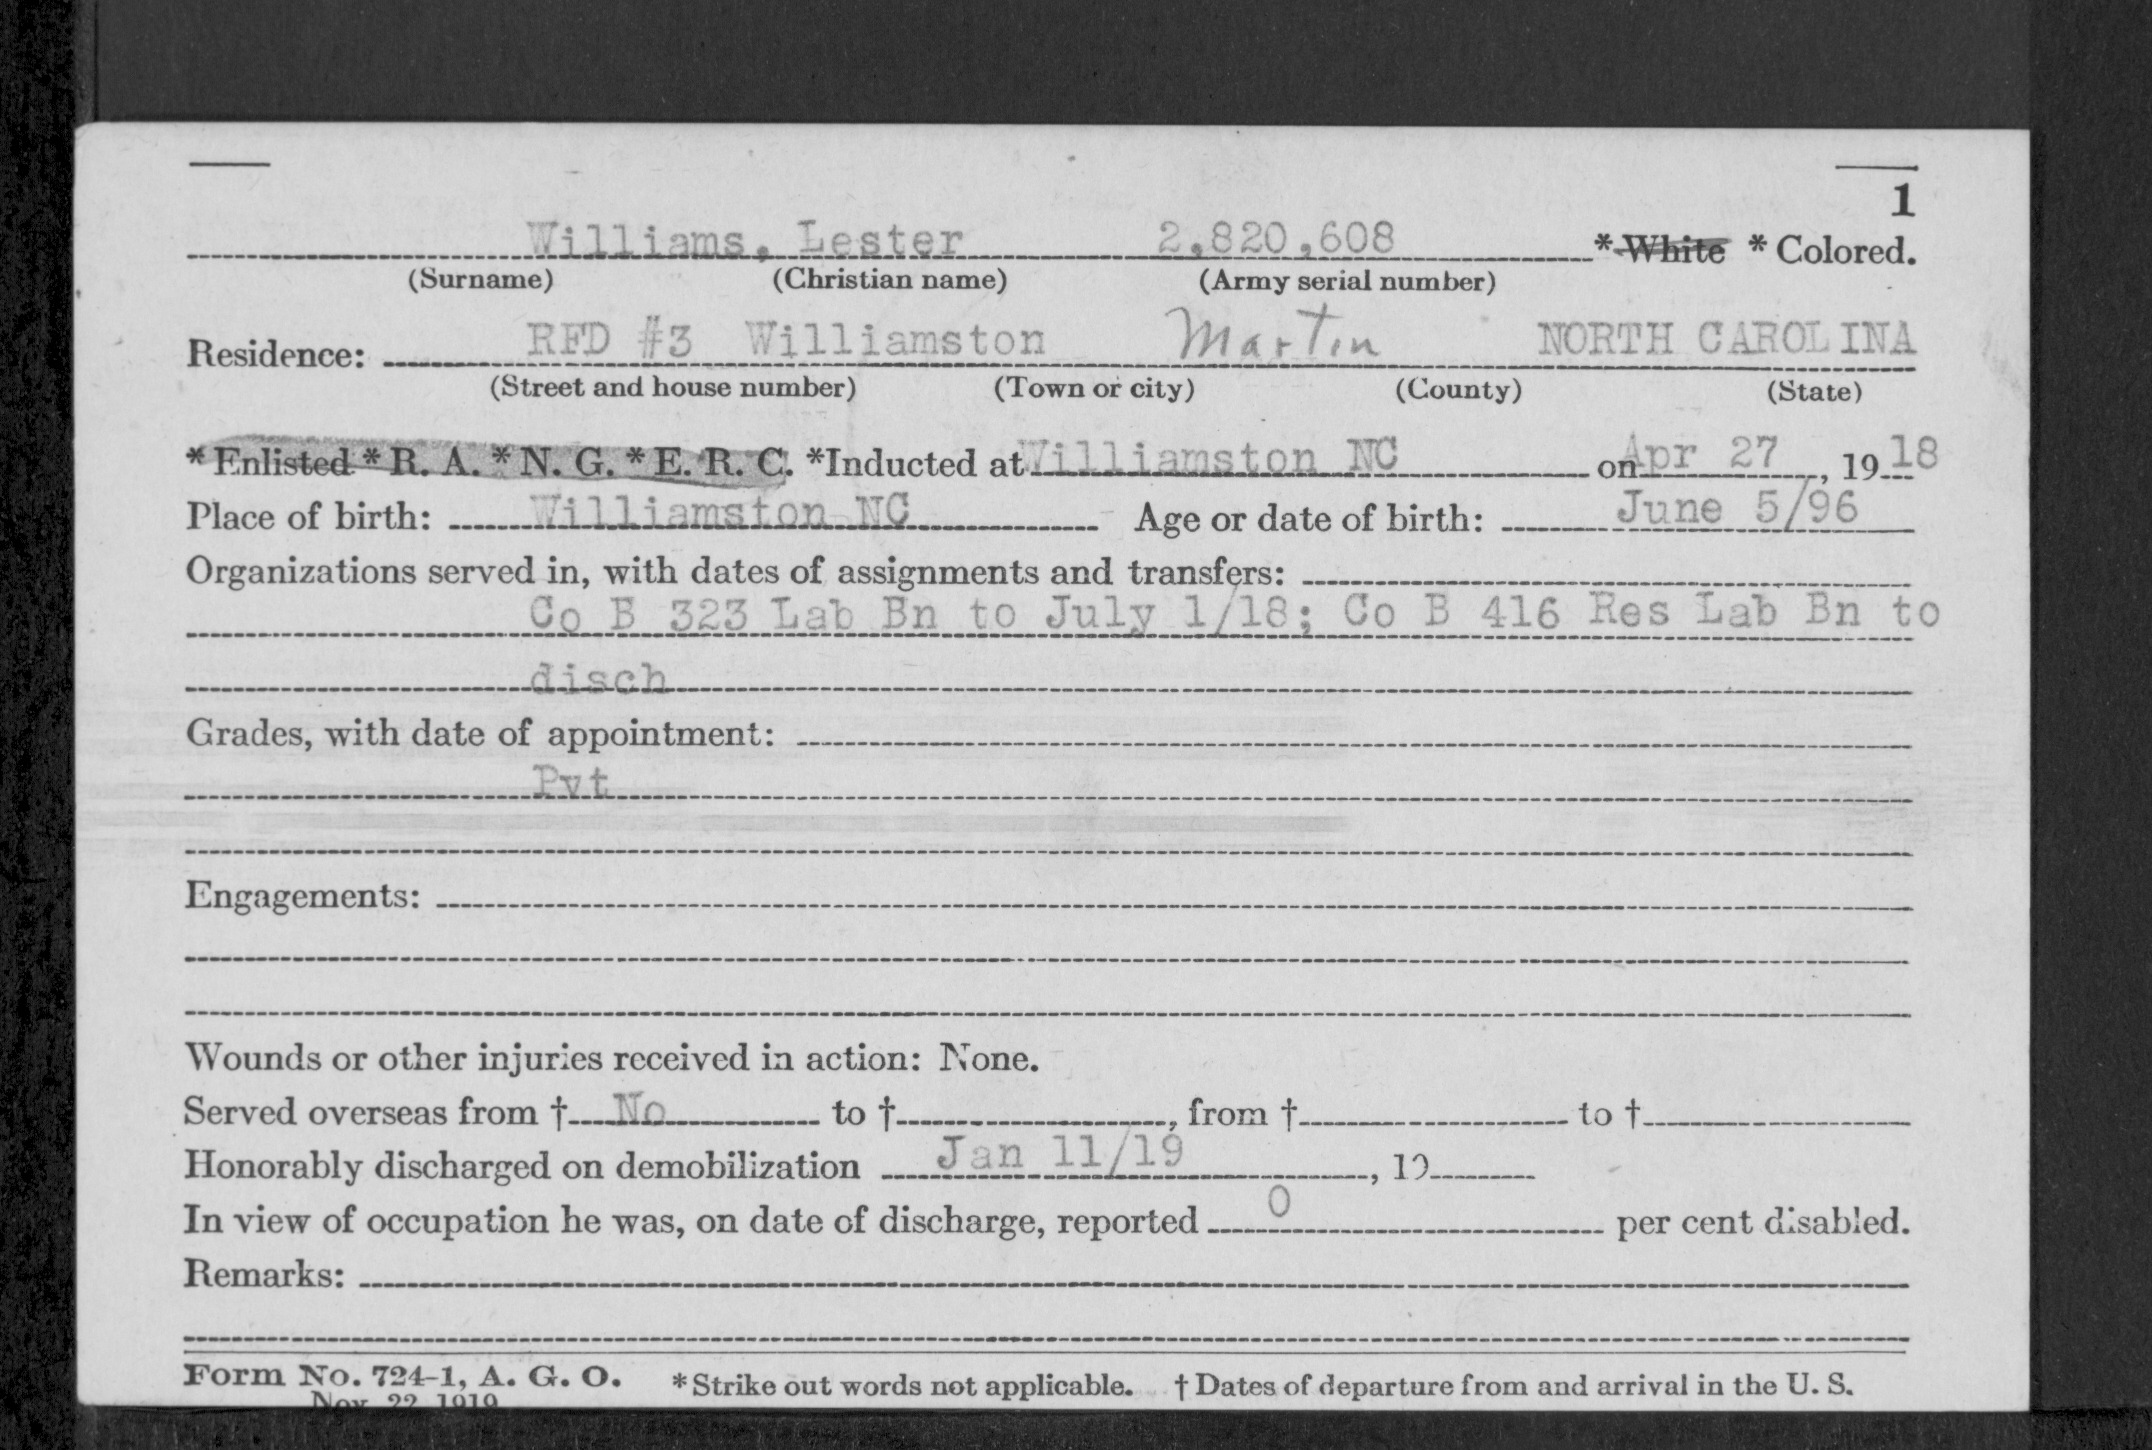 1
Williams, Lester 2,820,608 * White * Colored.
(Surname) (Christian name) (Army serial number)
Residence: RFD #3 Williamston Martin NORTH CAROLINA
(Street and house number) (Town or city) (County) (State)
* Enlisted * R. A. * N. G. * E. R. C. *Inducted at Williamston NC on Apr 27, 1918
Place of birth: Williamston NC Age or date of birth: June 5/96
Organizations served in, with dates of assignments and transfers:
Co B 323 Lab Bn to July 1/18; Co B 416 Res Lab Bn to
disch
Grades, with date of appointment:
Pvt
Engagements:
Wounds or other injuries received in action: None.
Served overseas from † No to †, from † to †
Honorably discharged on demobilization Jan 11/19, 19
In view of occupation he was, on date of discharge, reported 0 per cent disabled.
Remarks:
Form No. 724-1, A. G. O. * Strike out words not applicable. † Dates of departure from and arrival in the U. S.
Nov. 22, 1919